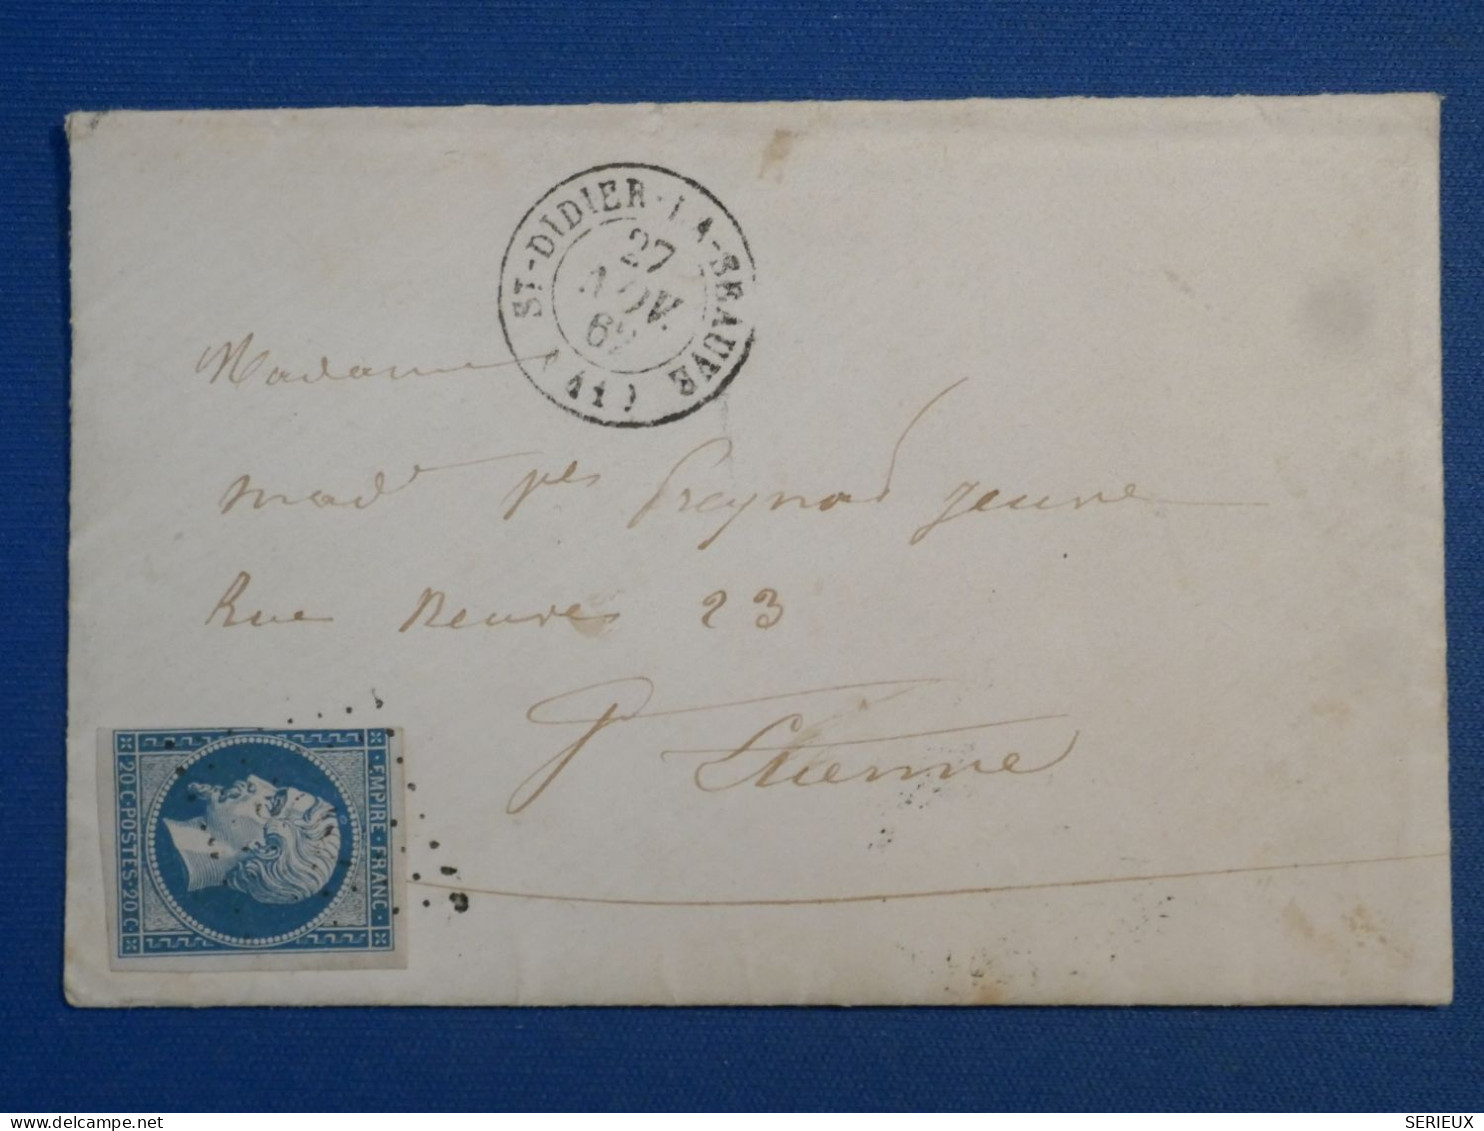 ST-DIDIER-LA-SEAUVE
27
NOV.
(41)
Madame
Mad
jeune
Rue Neuve 23
St Etienne
EMPIRE · FRANC ·
20 C · POSTES · 20 C
delcampe.net
SERIEUX